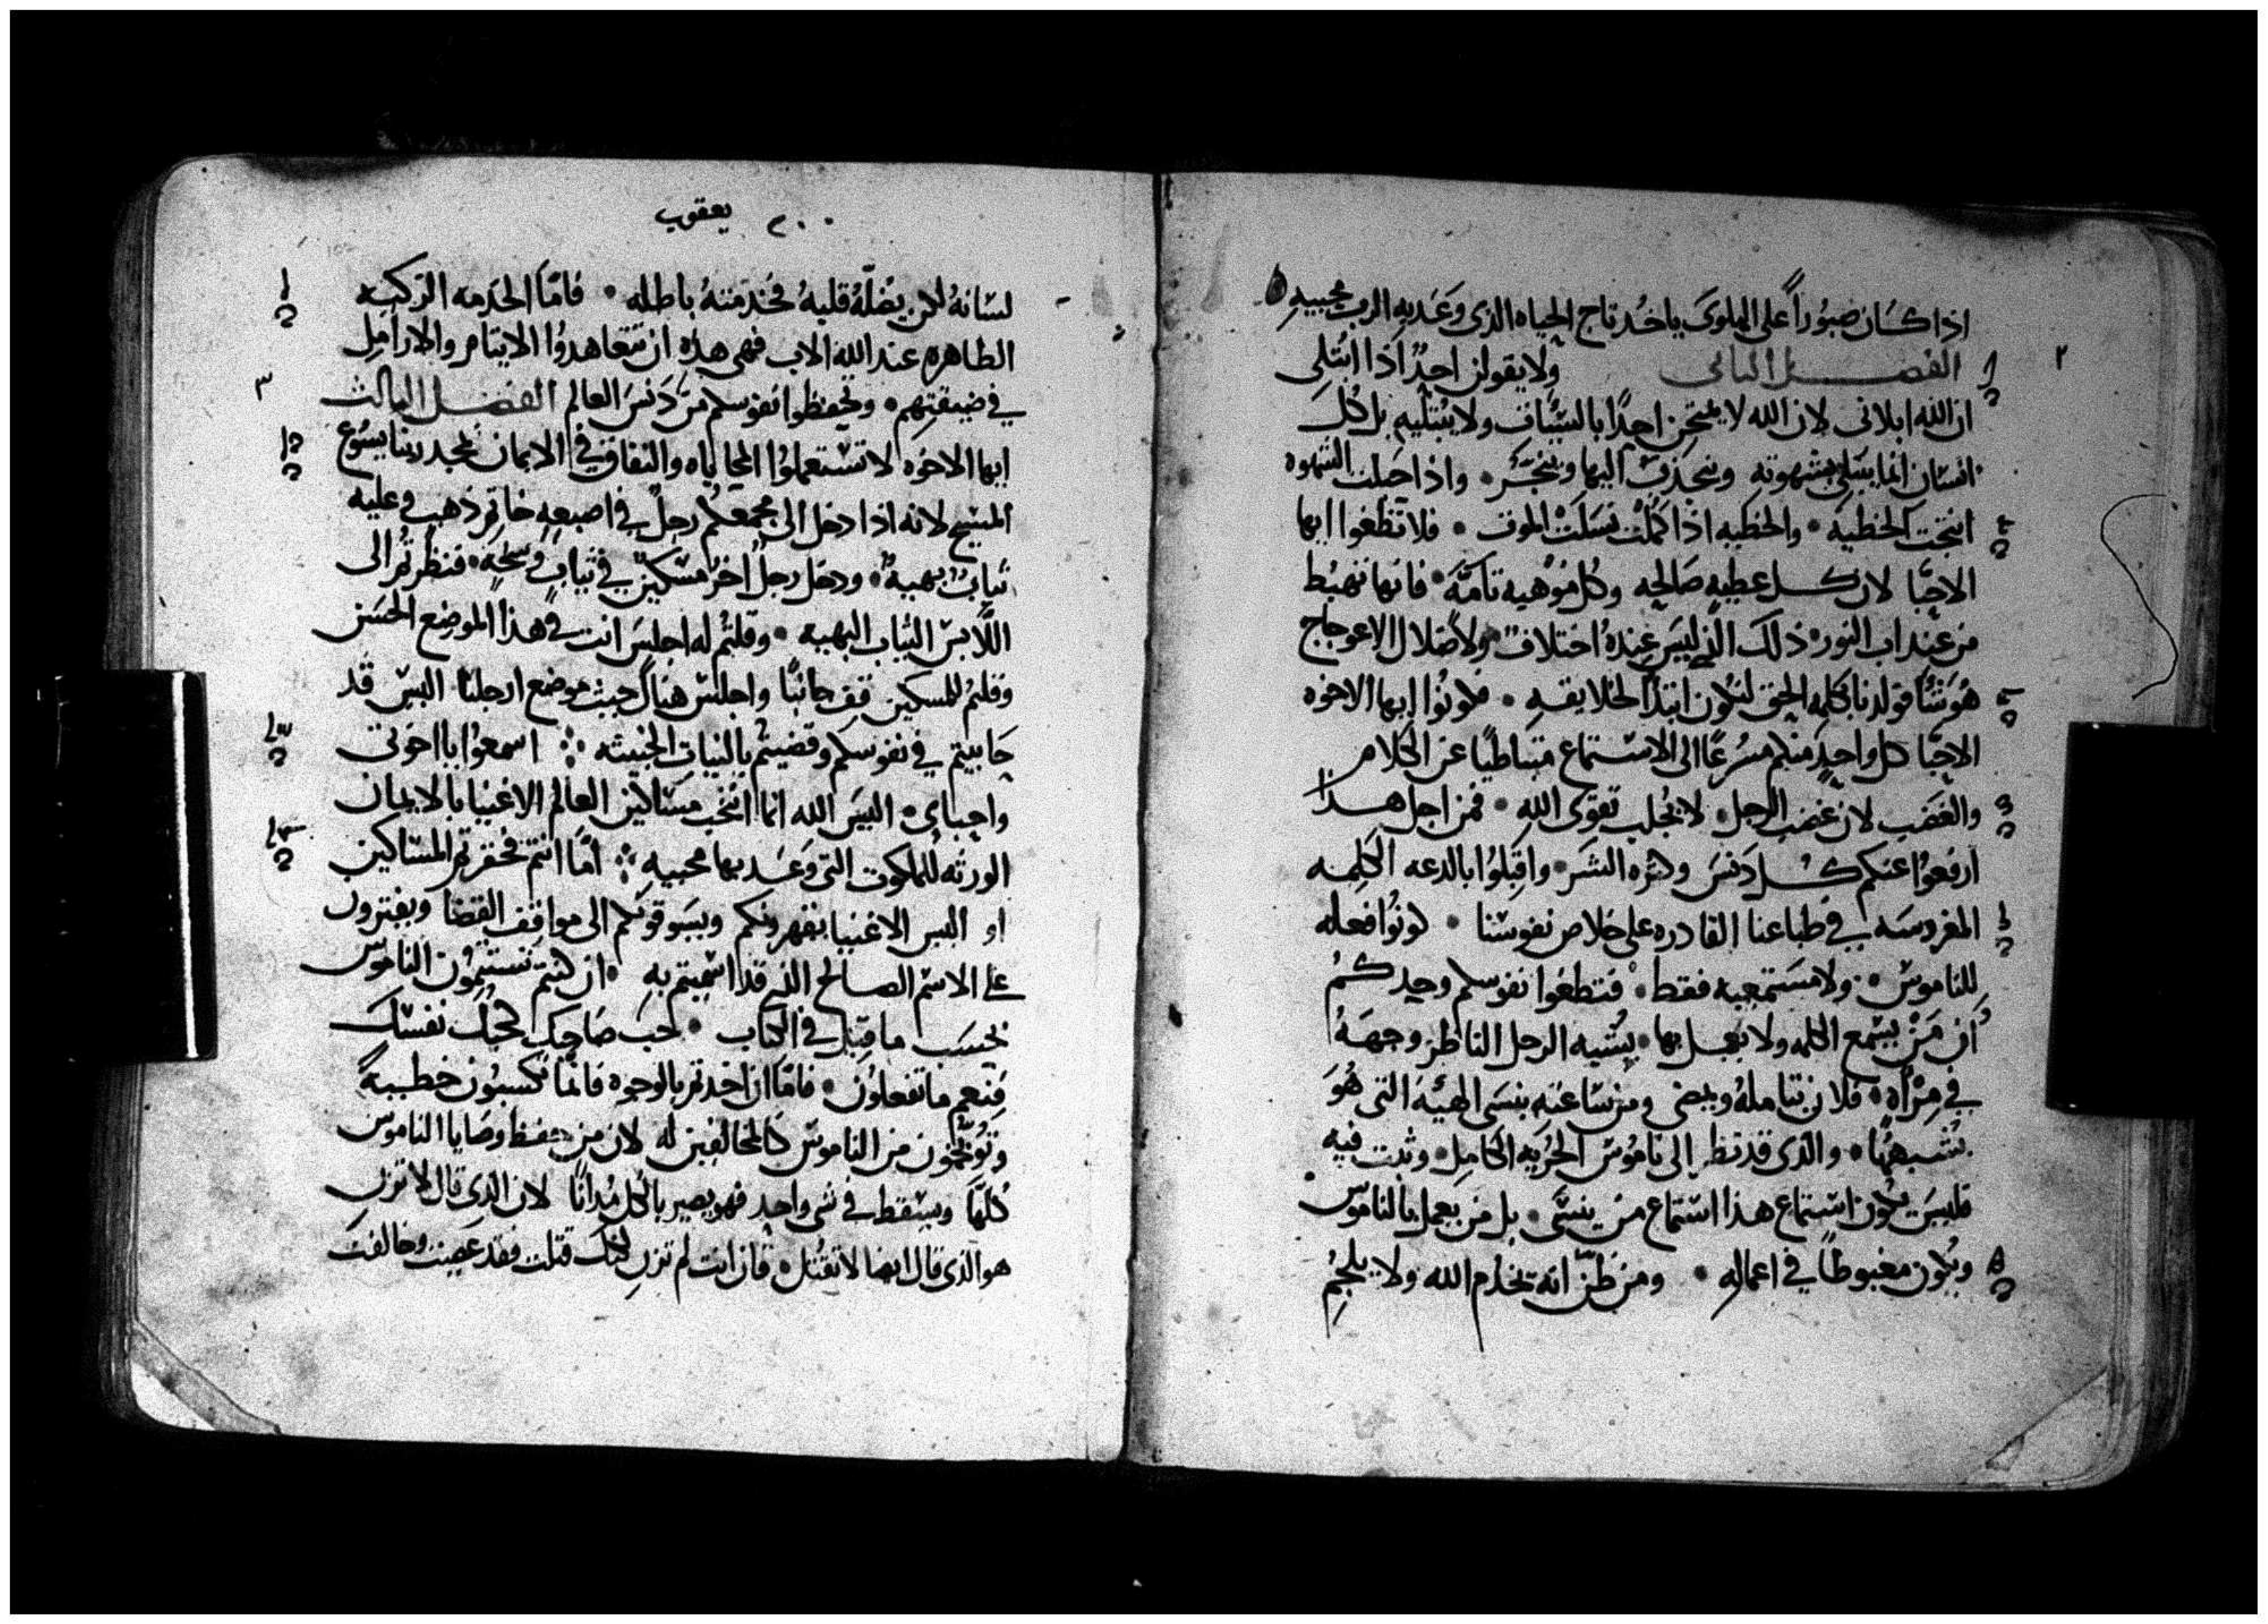 اذا كسان صبوراً على البلوى ياخد تاج الحياه الذى وَعَد به الرب محبيهِ
٢ الفصـــل التانى ولا يقولن احدٌ اذا ابتُلى
ان الله ابلانى لان الله لا يمتحن احدًا بالسيّات ولا يبتليهِ بل كُل
انسان انما يبتلى بشهوته وينجذب اليها وينجرّ • واذا حَبلت الشهوه
انتجت الخطيه • والخطيه اذا كَمُلت نسَلت الموت • فلا تطغوا ايها
الاحبّا لان كـــل عطيه صَالحه وكُل موهبه تامّه • فانها تهبُط
من عند اب النور ذلك الذى ليسَ عِندهُ اختلاف ولا ضلال الاعوجاج
هُوَ شَآ فولدنا بكلمه الحق لنكون ابتدآ لخلايقــهِ • فكونُوا ايها الاخوه
الاحبّا كل واحدٍ منكم مسُرعًا الى الاستماع متباطيًا عن الكلام
والغضَب لان غضب الرجل لا يجُلب تقوى اللهِ • فمن اجل هـــذا
ارفعُوا عنكم كـــل دَنسَ وكثره الشَر • واقبَلوُا بالدعه الكلمــه
المغروسَه في طباعنا القادره على خلاص نفوسنا • كونُوا فعله
للناموس • ولا مسَتمعيه فقط • فتطغوا نفوسكم وحيدكـــمُ
كان مَنْ يسَمع الكلمه ولا يعمــل بها • يشُبه الرجل الناظر وجههَ
في مِرْاهِ • فلان يتاملهُ ويمضى ومن سَاعته ينسَى الهيئه التى هُوَ
يشُـبههُا • والذى قد نظر الى نامُوس الحُريه الكامِل • وثبت فيه
فليسَ يكون استماع هـذا استماع من ينسَى • بل من يعمل بالناموس
ويكون مغبوطاً في اعمالهِ • ومن ظنّ انه يخدُم الله ولا يلجمُ
٢٠٠ يعقوب
لسَانهُ لكن يضلّهُ قلبهُ فخُدمتهُ باطله • فامّا الخدمه الزكيه
الطاهره عند الله الاب فهى هذه ان تتعاهدوُا الايتام والارامِل
في ضيقتهم • وتحفظوا نفوسكم من دَنسَ العالم الفصــل التالت ٣
ايها الاخوه لا تستعملوُا المحاباه والنفاق في الايمان بمجد ربنا يسُوع
المسَيح لانه اذا دخل الى مجمعكُم رجلٌ في اصبعهِ خاتم ذهب وعليه
تيابٌ بهيهٌ • ودخل رجل اخر مسكينٌ في تيابٍ وسَخهٍ • فنظرتُم الى
اللّابسَ التياب البهيه • وقلتمُ له اجلسَ انت في هذا الموضع الحسَن
وقلتمُ للمسكين قف جانبًا واجلسَ هناك حيث موضع ارجلنا اليسَ قد
حَابيتم في نفوسكم وقضيتُم بالنياتِ الخبيثه ჻ اسمعُوا يا اخوتى
واحباى • اليسَ الله انما انتخب مسَاكين العالم الاغنيا بالايمان
الورثه للملكوت التى وَعَــد بها محبيه ჻ امّا انتم فحُقرتم المسَاكين
او اليس الاغنيا يقهرونكم ويسَوقونكم الى مواقف القضَا ويفترون
على الاسَم الصالح الذى قد اسَميتم به • ان كنتم تستتمُون الناموس
بحسَب ما قيل في الكتاب • حب صَاحبك كحُبك نفسَك
فنعم ما تفعلوُن • فامّا ان اخدتم بالوجوه فانما تكسبُون خطيـــهً
وتوُبَّخون من الناموس كالمخالفين له لان من حفـظ وصَايا الناموس
كلها ويسَقط في شى واحدٍ فهو يصير بالكُل مُدانًا لان الذى قال لا تزن
هو الذى قال ايضا لا تقتُل • فان انت لم تزنِ لكنك قتلت فقد عَصيت وخالفت